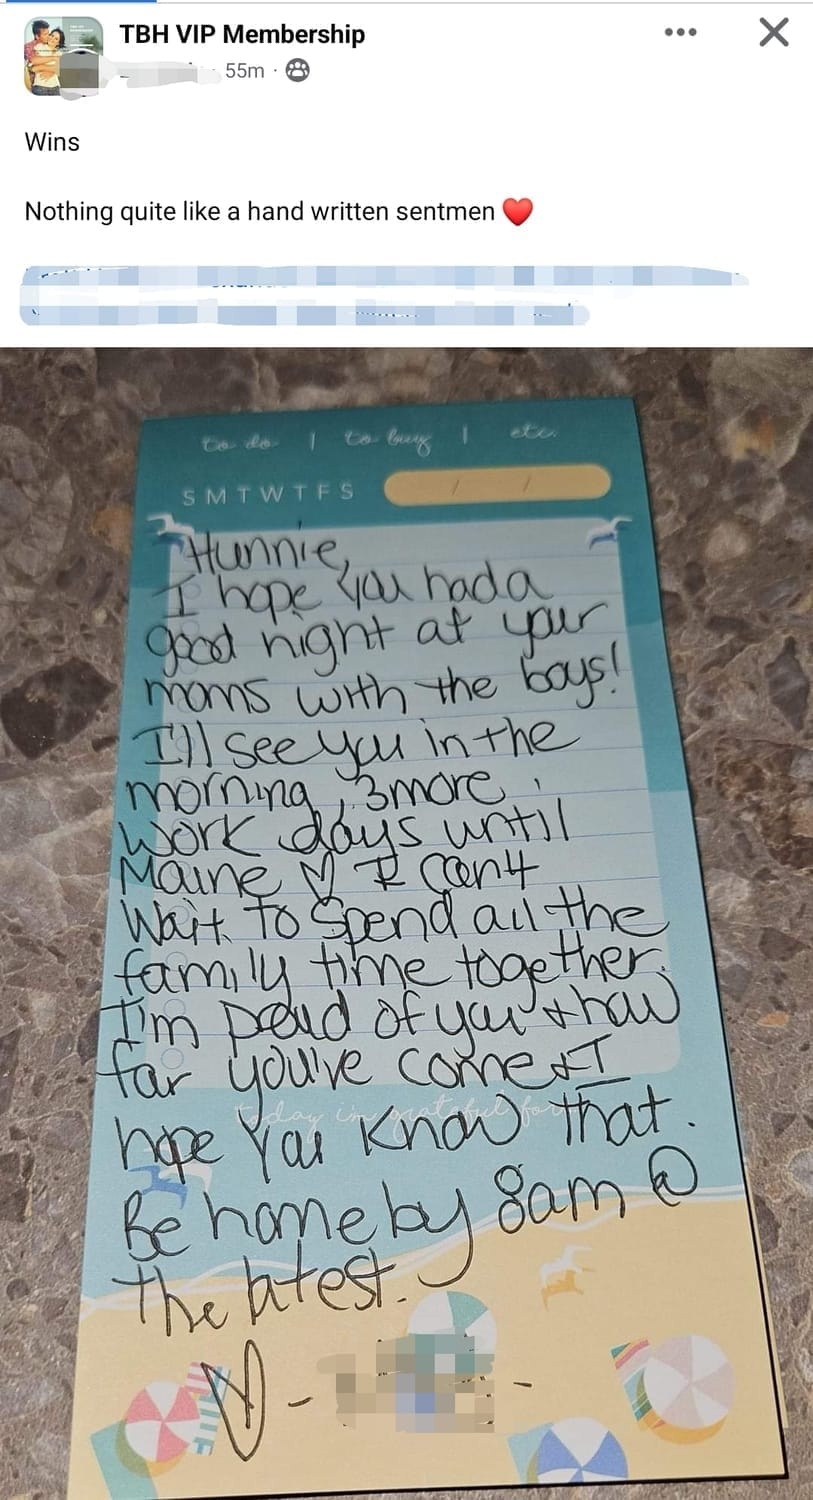 TBH VIP Membership
55m
Wins
Nothing quite like a hand written sentmen ❤️
to do | to buy | etc.
S M T W T F S / /
Hunnie,
I hope you had a
good night at your
moms with the boys!
I'll see you in the
morning, 3 more
work days until
Maine ♡ I can't
wait to spend all the
family time together.
I'm proud of you & how
far you've come & I
today i'm grateful for
hope you know that.
Be home by 8am @
the latest.
♡ - -